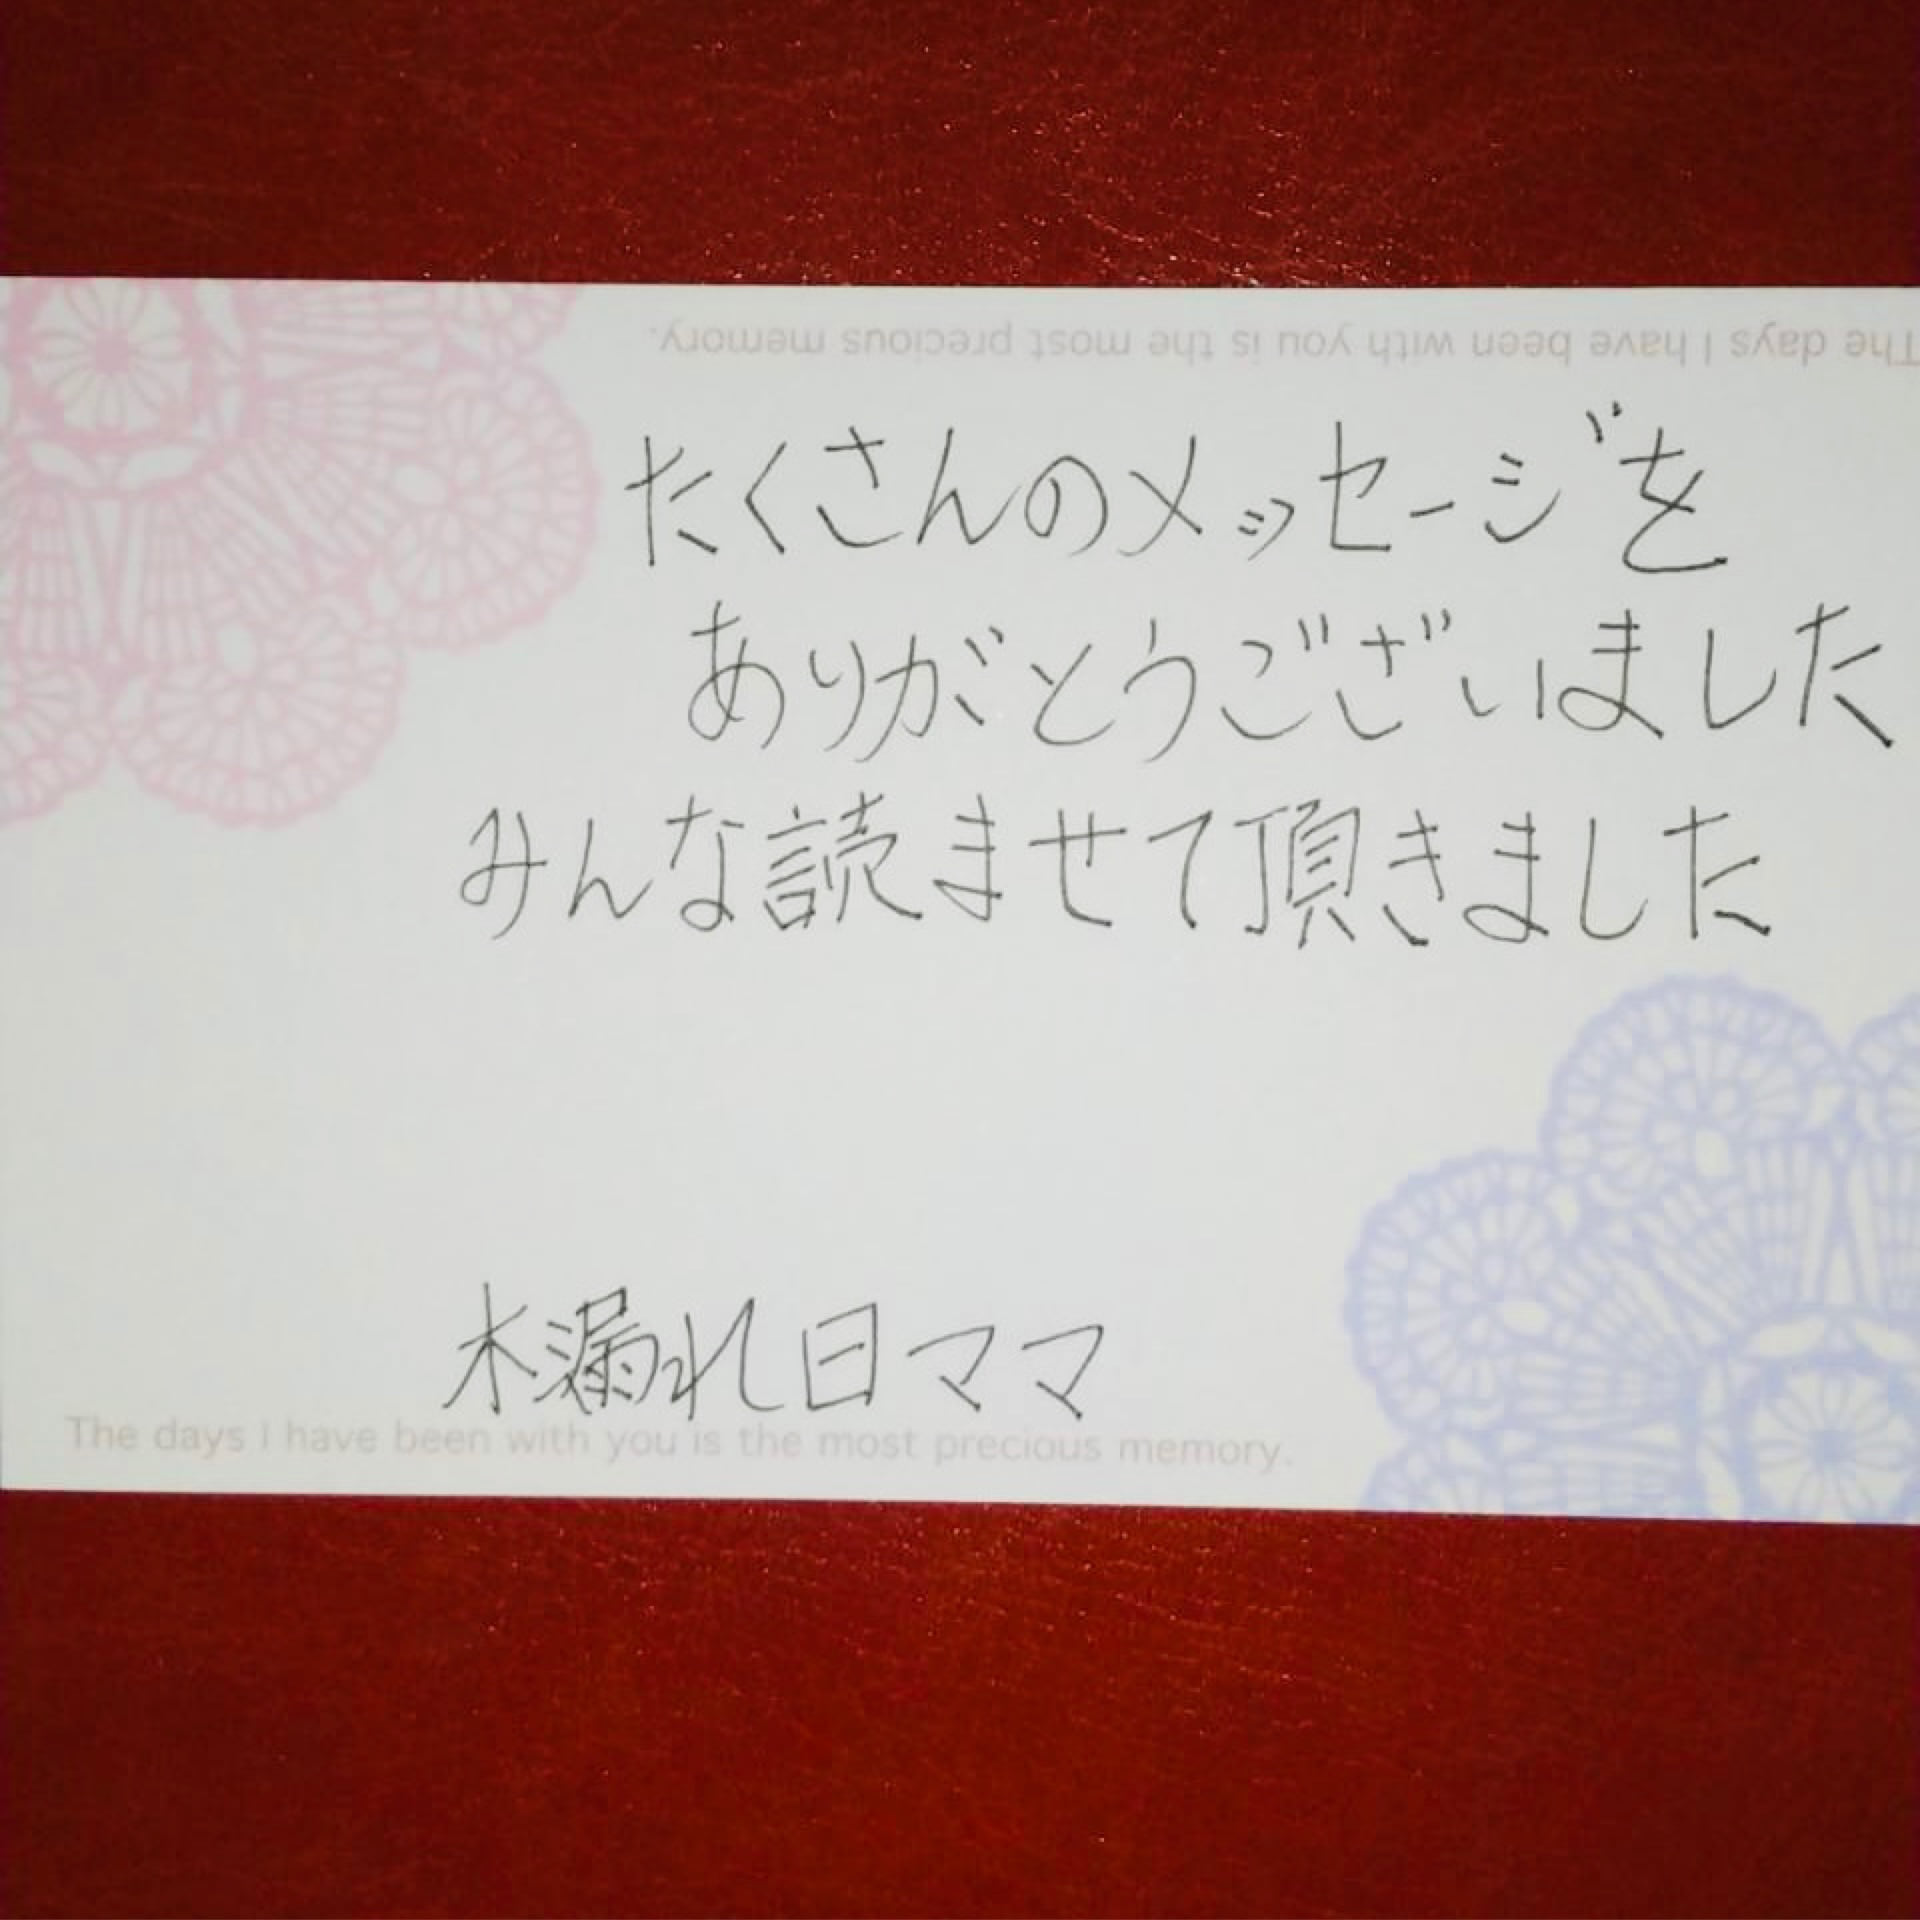 The days I have been with you is the most precious memory.
たくさんのメッセージを
ありがとうございました
みんな読ませて頂きました
木漏れ日ママ
The days I have been with you is the most precious memory.